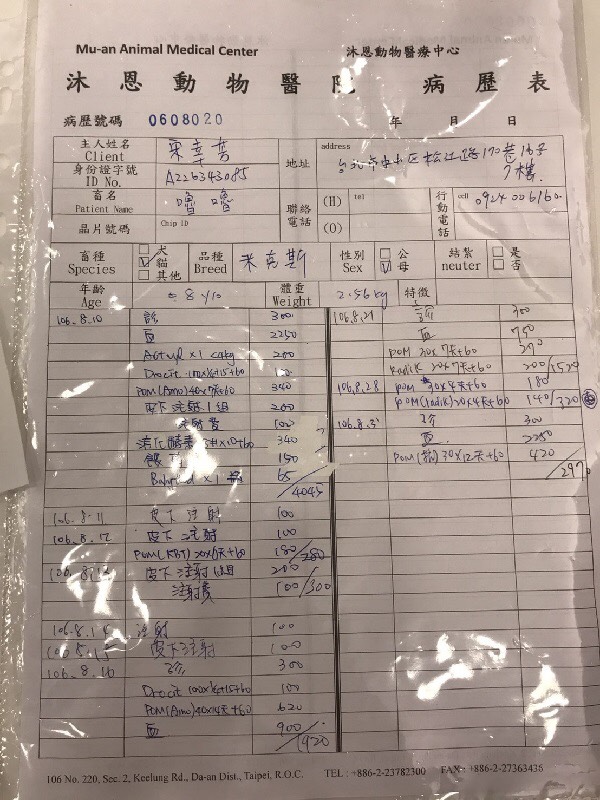 Mu-an Animal Medical Center 沐恩動物醫療中心
沐恩動物醫院 病歷表
病歷號碼 0608020 年 月 日
主人姓名 Client
地址 address 台北市中山區松江路170巷 7樓
身份證字號 ID No. A226343085
畜名 Patient Name 嚕嚕
聯絡電話 (H) tel (O)
行動電話 cell 0924 006160
晶片號碼 Chip ID
畜種 Species 犬 貓 其他
品種 Breed 米克斯
性別 Sex 公 母
結紮 neuter 是 否
年齡 Age ≒ 8 y/o
體重 Weight 2.56kg
特徵
106.8.10 診 300
血 2250
200
Drocit 100
POM(Amo) 40x7天+60 340
皮下注射1組 200
注射費 100
消化酵素 340
150
x1 65
/4045
106.8.11 皮下注射 100
106.8.12 皮下注射 100
POM(KBT) +60 180/280
皮下注射1組 200
注射費 100/300
106.8.14 注射 100
皮下注射 100
106.8.16 診 300
Drocit 100
POM(Amo) 40x14天+60 620
血 900
/1920
106.8.21 診 300
血 750
POM 30x7天+60 270
Radik 20x7天+60 200/1520
106.8.28 POM 30x4天+60 180
POM(Radik) 20x4天+60 140/320
診 300
血 2250
POM 30x12天+60 420
/2970
106 No. 220, Sec. 2, Keelung Rd., Da-an Dist., Taipei, R.O.C. TEL : +886-2-23782300 FAX : +886-2-27363436